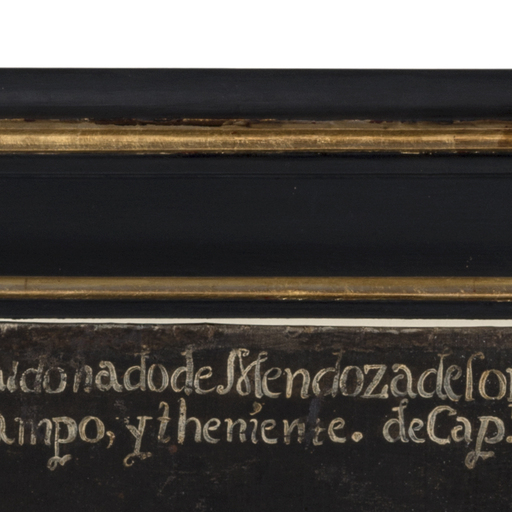 aldonado de Mendoza del or
ampo, y theniente. de Cap.